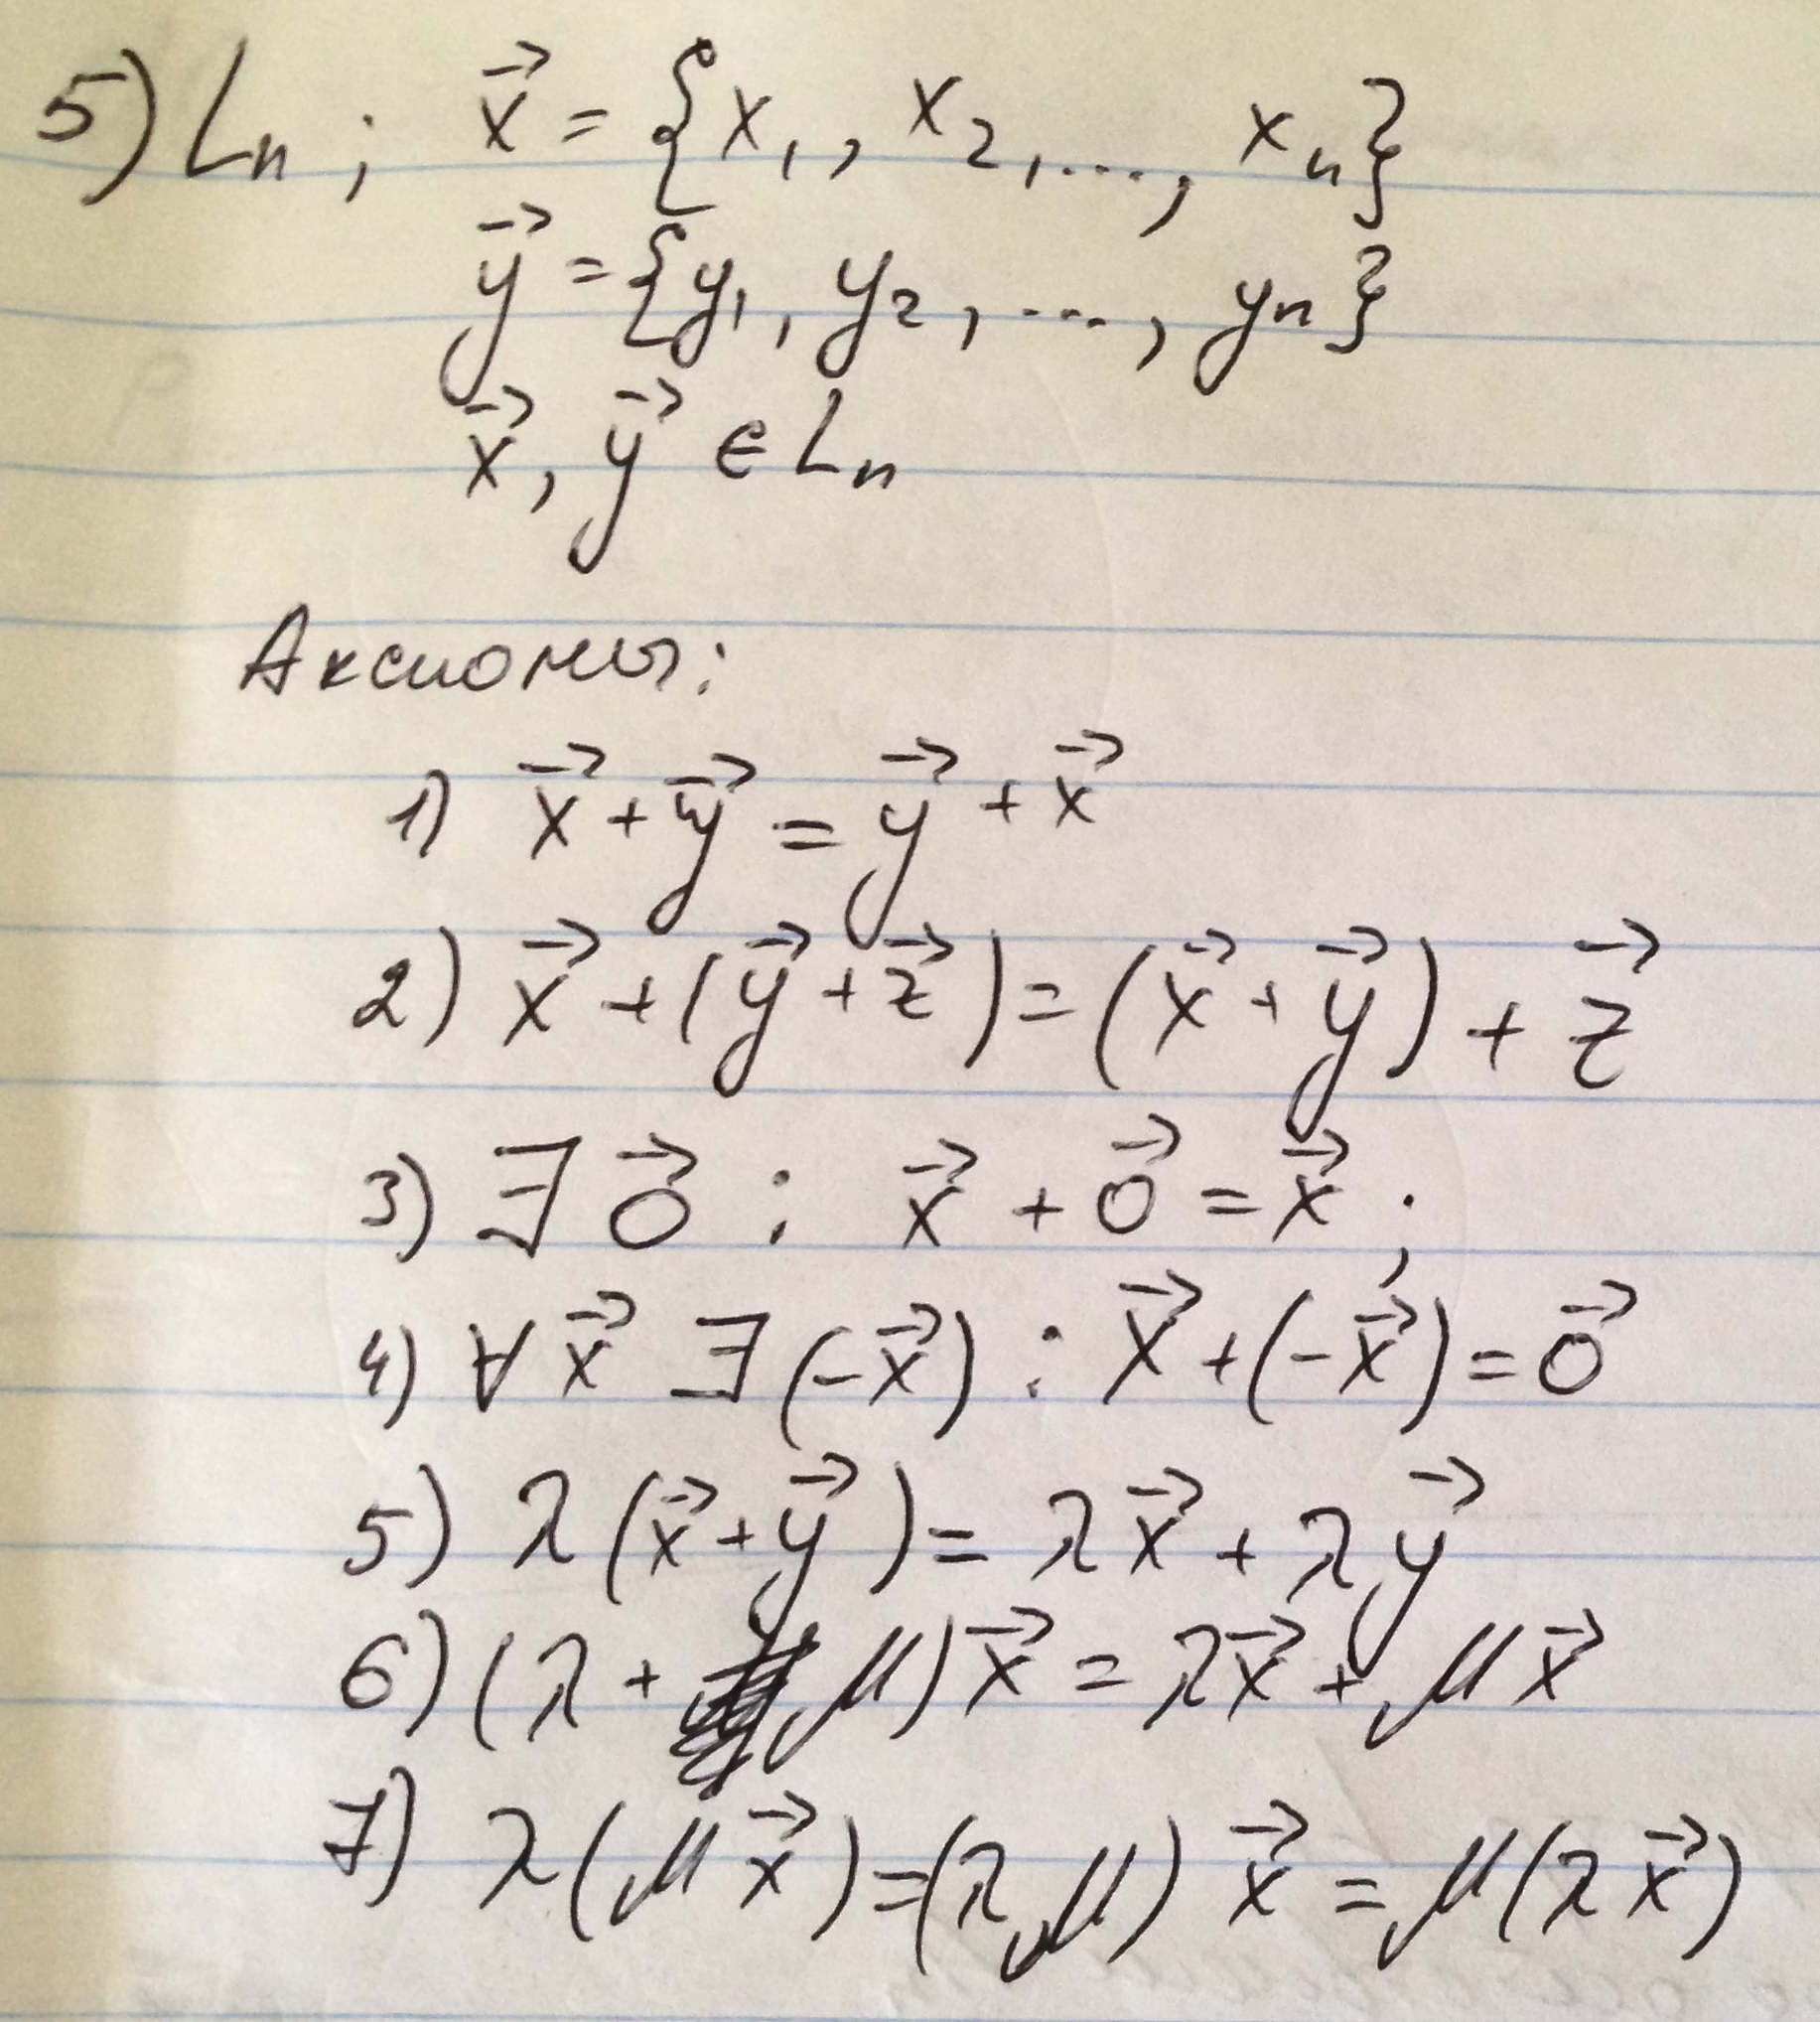 5) Lₙ; x⃗ = {x₁, x₂, ..., xₙ}
y⃗ = {y₁, y₂, ..., yₙ}
x⃗, y⃗ ∈ Lₙ
Аксиомы:
1) x⃗ + y⃗ = y⃗ + x⃗
2) x⃗ + (y⃗ + z⃗) = (x⃗ + y⃗) + z⃗
3) ∃ 0⃗ : x⃗ + 0⃗ = x⃗ ;
4) ∀ x⃗ ∃ (-x⃗) : x⃗ + (-x⃗) = 0⃗
5) λ (x⃗ + y⃗) = λx⃗ + λy⃗
6) (λ + μ) x⃗ = λx⃗ + μx⃗
7) λ(μx⃗) = (λμ) x⃗ = μ(λx⃗)